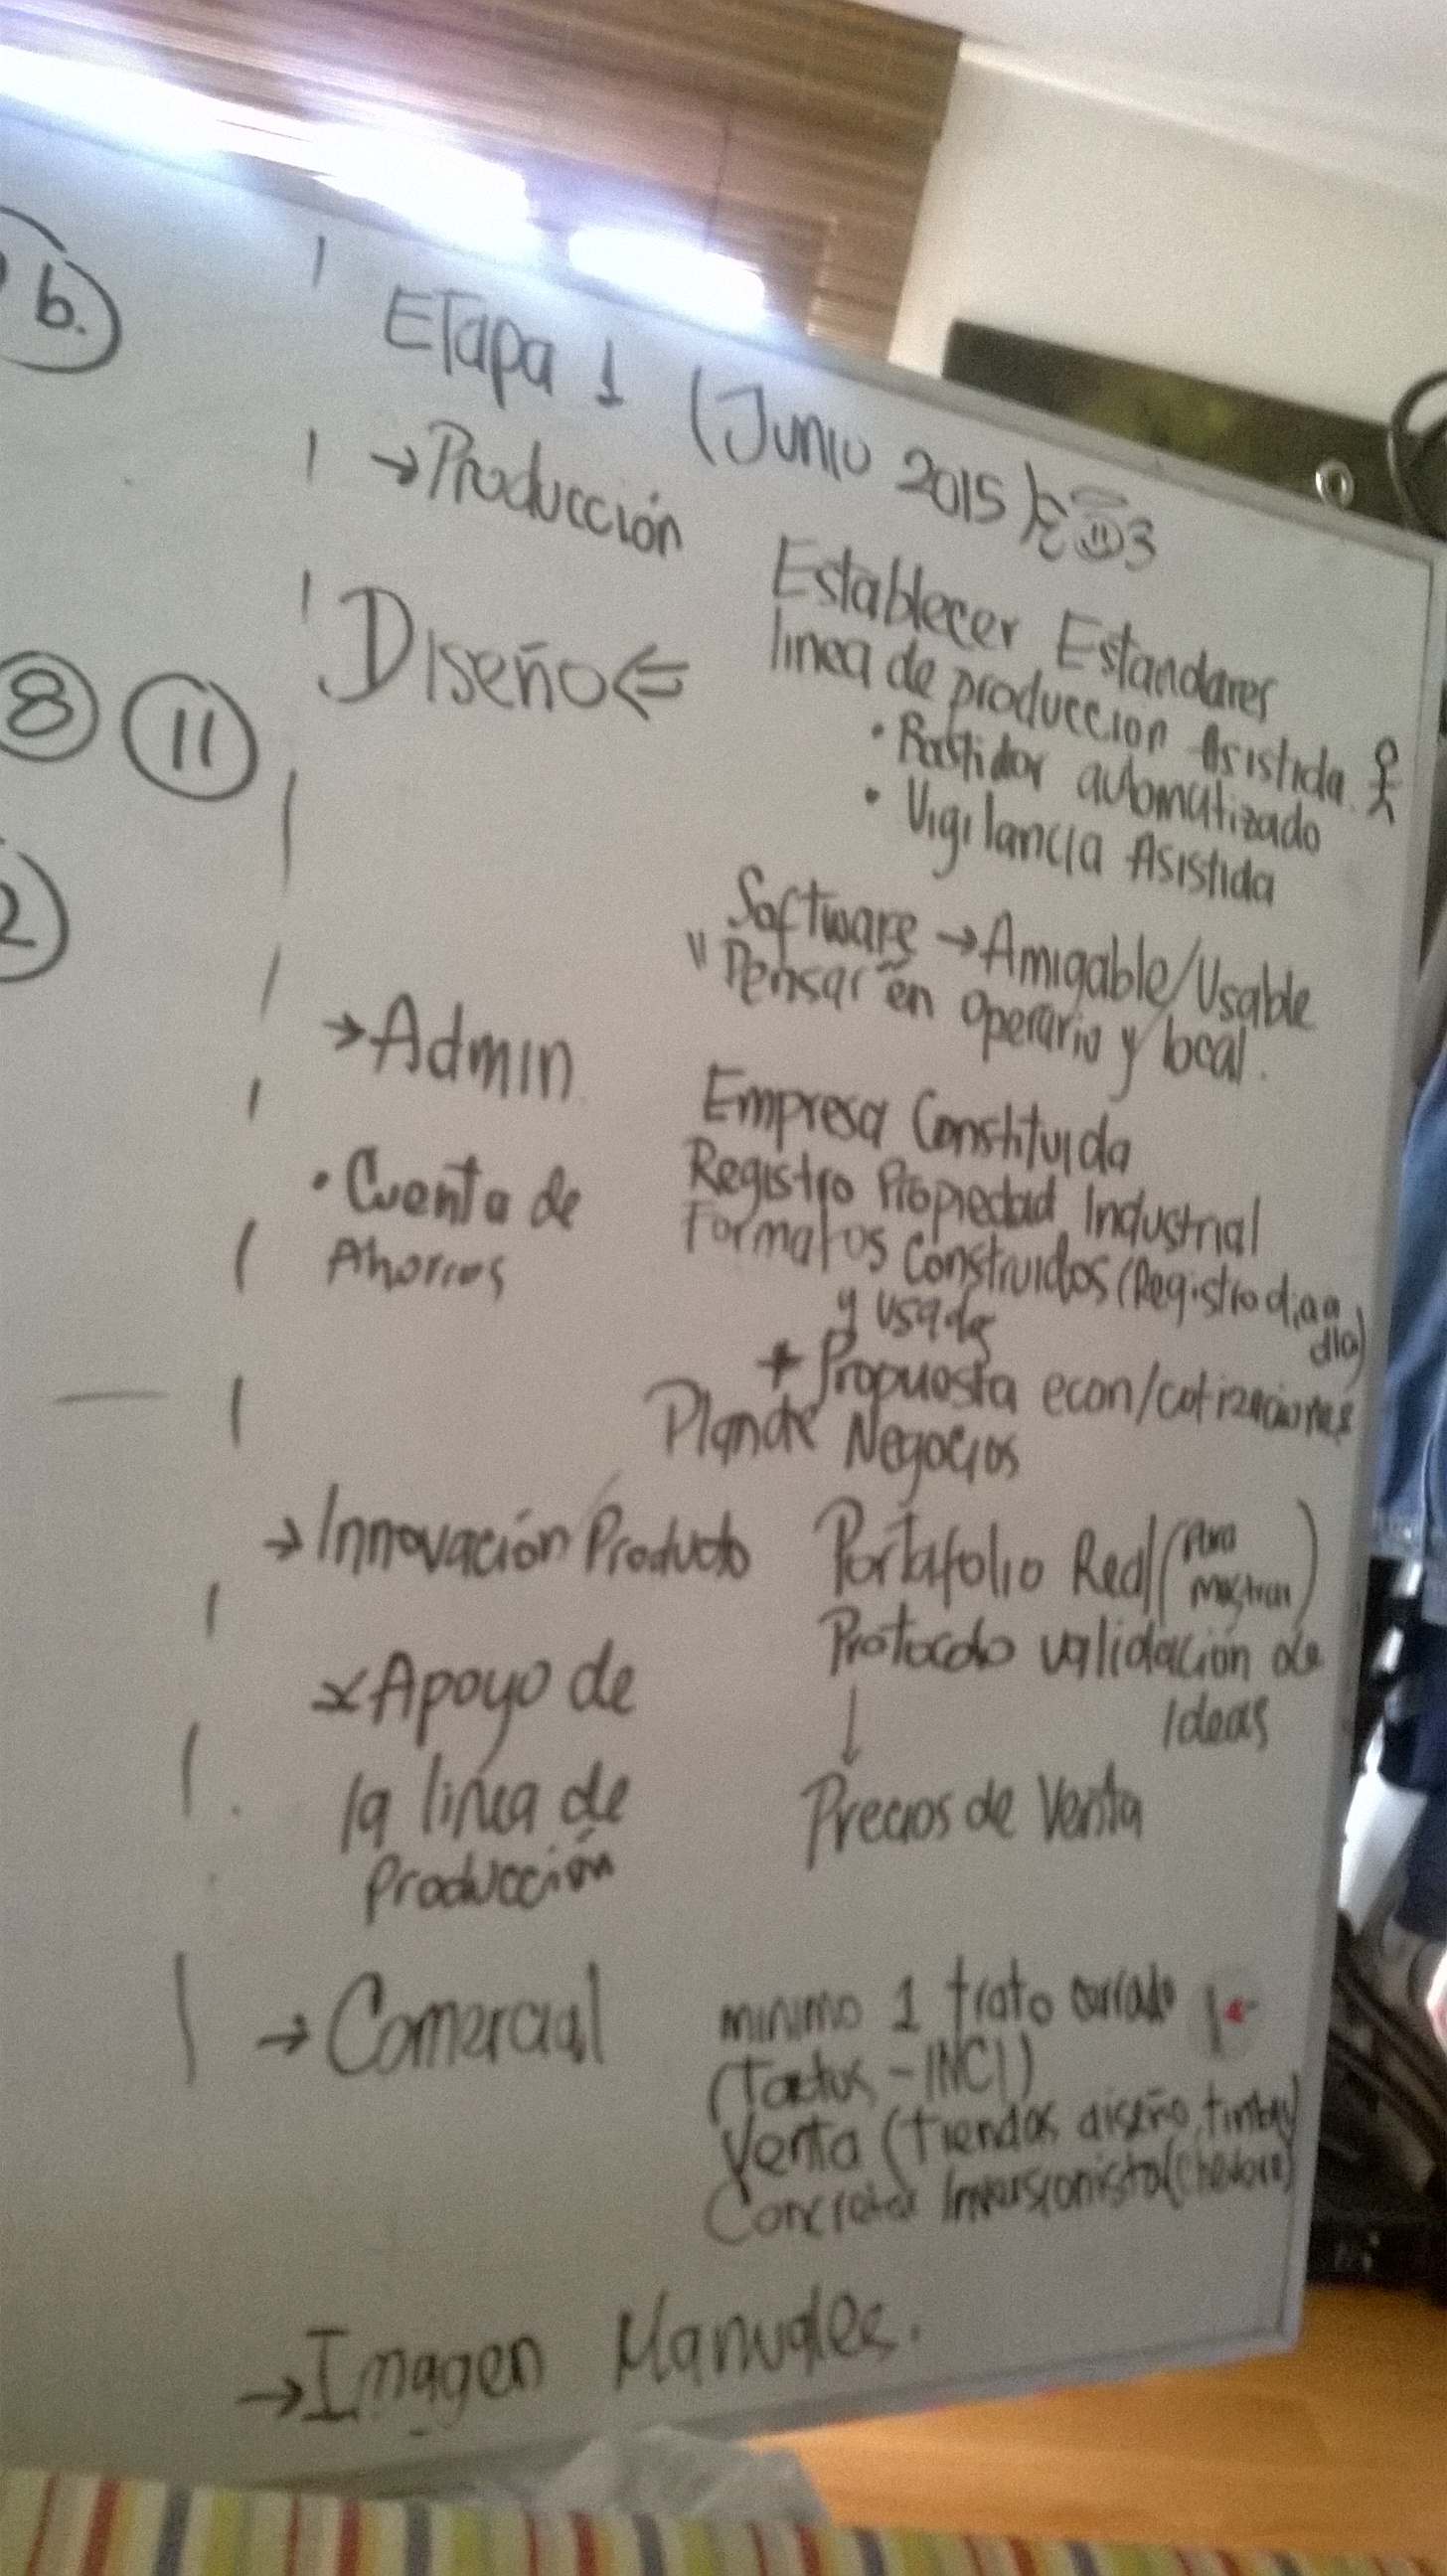 b.
Etapa 1 (Junio 2015)
→Producción
Establecer Estandares
linea de produccion Asistida.
• Bastidor automatizado
• Vigilancia Asistida
Diseño⇐
8 11
2
Software → Amigable/Usable
"Pensar en operario y local.
→Admin
Empresa Constituida
• Cuenta de
Ahorros
Registro Propiedad Industrial
Formatos Construidos (Registro dia a
dia)
y usados
+ Propuesta econ/cotizaciones
Plan de Negocios
→Innovación Producto
Portafolio Real (para
mostrar)
Protocolo validación de
Ideas
↓
Precios de Venta
*Apoyo de
la linea de
Producción
→Comercial
minimo 1 trato cerrado
(Tactus - INCI)
Venta (Tiendas diseño,
Concretar Inversionista
→Imagen Manuales.